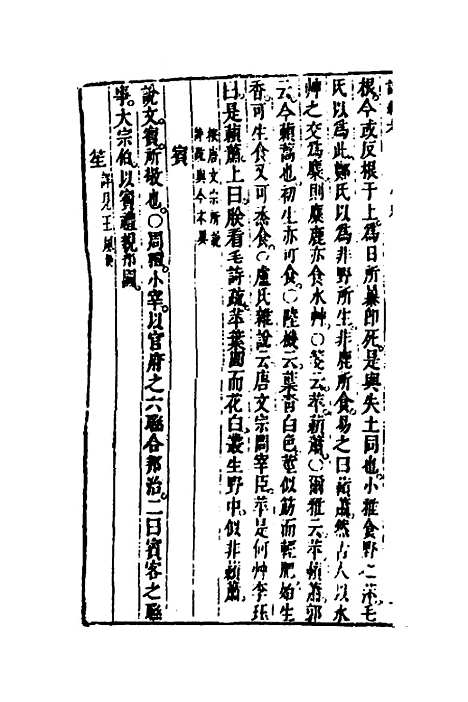 根今或反根于上爲日所暴即死是與失土同也小雅食野之苹毛
氏以爲此鄭氏以爲非野所生非鹿所食易之曰藾蕭然古人以水
艸之交爲麋則麋鹿亦食水艸○箋云苹藾蕭○爾雅云苹藾蕭郭
云今藾蒿也初生亦可食○陸機云葉青白色莖似筯而輕肥始生
香可生食又可烝食○盧氏雜說云唐文宗問宰臣苹是何艸李珏
曰是藾蕭上曰朕看毛詩疏苹葉圓而花白叢生野中似非藾蕭
按唐文宗所說
詩疏與今本異
賓
說文賓所敬也○周禮小宰以官府之六聯合邦治二曰賓客之聯
事大宗伯以賓禮親邦國
笙 詳見王風